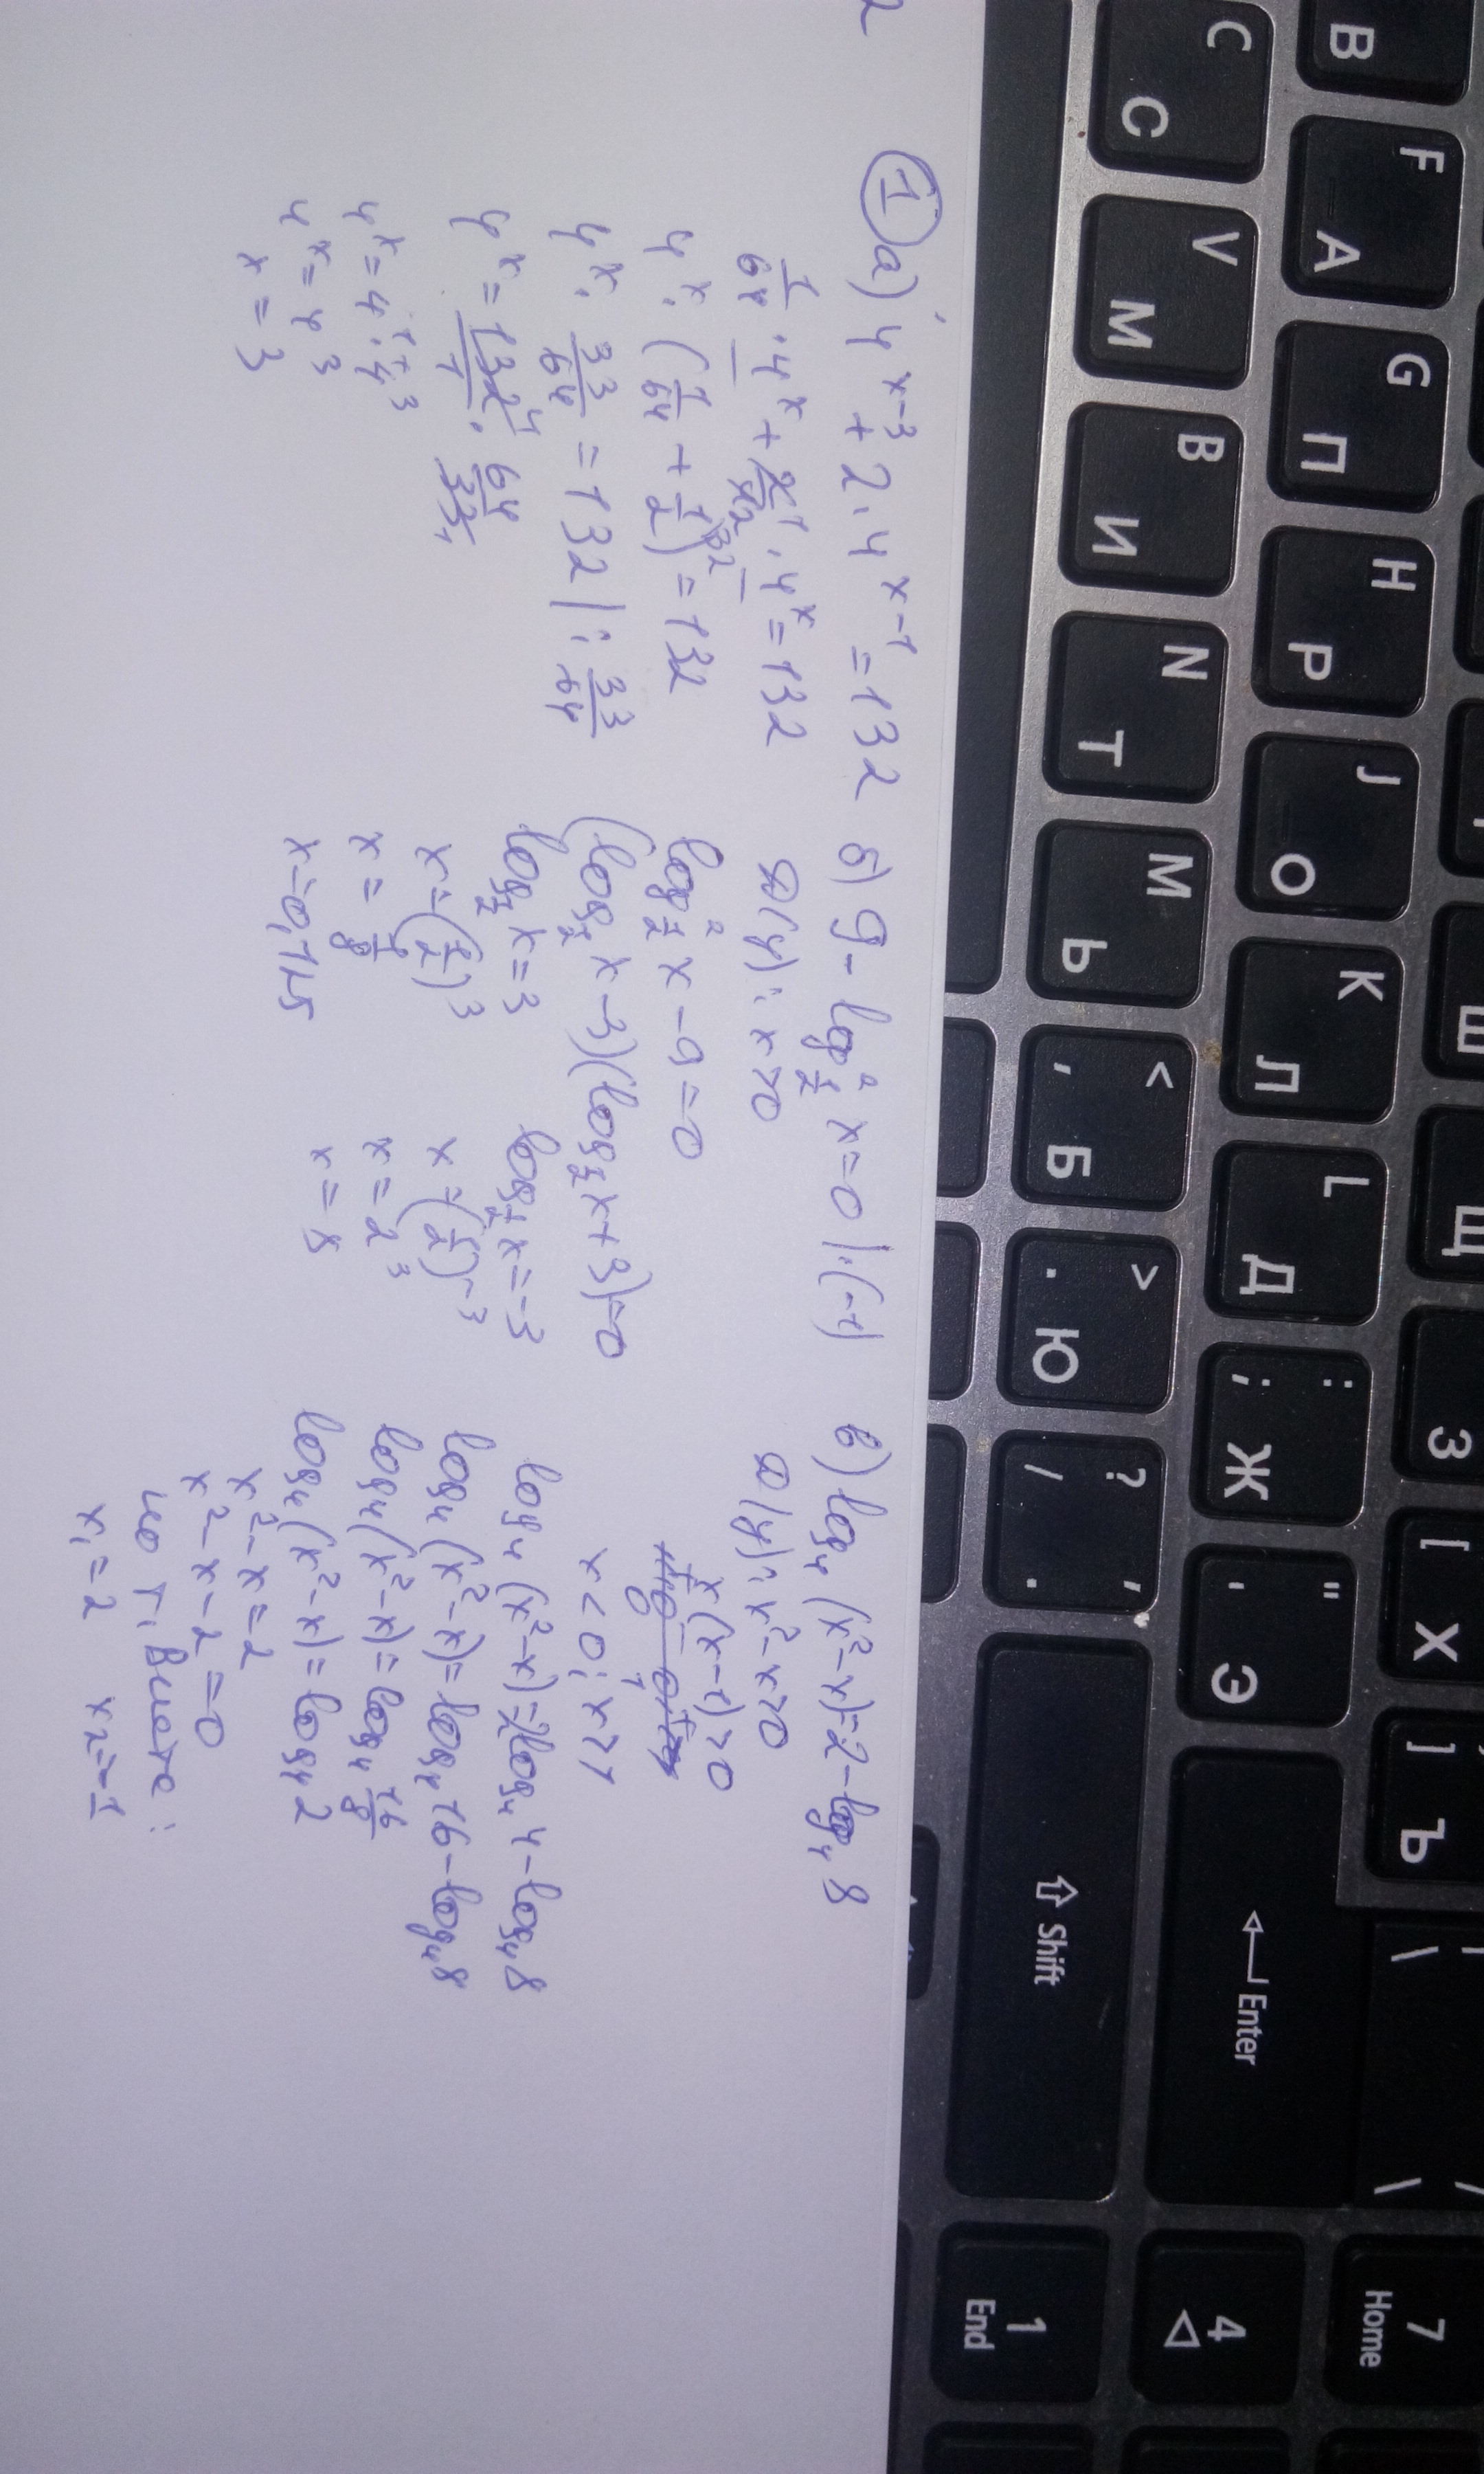 2
① а) 4^(x-3) + 2·4^(x-1) = 132
1/64 · 4^x + 2/4 · 4^x = 132
4^x · (1/64 + 1/2) = 132
4^x · 33/64 = 132 | : 33/64
4^x = 132/1 · 64/33
4^x = 4^1 · 4^3
4^x = 4^3
x = 3
б) 9 - log²_(1/2) x = 0 | ·(-1)
D(y): x>0
log²_(1/2) x - 9 = 0
(log_(1/2) x - 3)(log_(1/2) x + 3) = 0
log_(1/2) x = 3
x = (1/2)^3
x = 1/8
x = 0,125
log_(1/2) x = -3
x = (1/2)^(-3)
x = 2^3
x = 8
в) log₄ (x²-x) = 2 - log₄ 8
D(y): x²-x>0
x(x-1)>0
x<0; x>1
log₄ (x²-x) = 2log₄ 4 - log₄ 8
log₄ (x²-x) = log₄ 16 - log₄ 8
log₄ (x²-x) = log₄ 16/8
log₄ (x²-x) = log₄ 2
x²-x = 2
x²-x-2 = 0
по т. Виета:
x₁ = 2 x₂ = -1
B
F А
G П
H Р
J О
K Л
L Д
: ; Ж
" ' Э
Enter
C С
V М
B И
N Т
M Ь
< , Б
> . Ю
? / , .
Shift
Ш
Щ
З
[ Х
] Ъ
\
7 Home
4
1 End